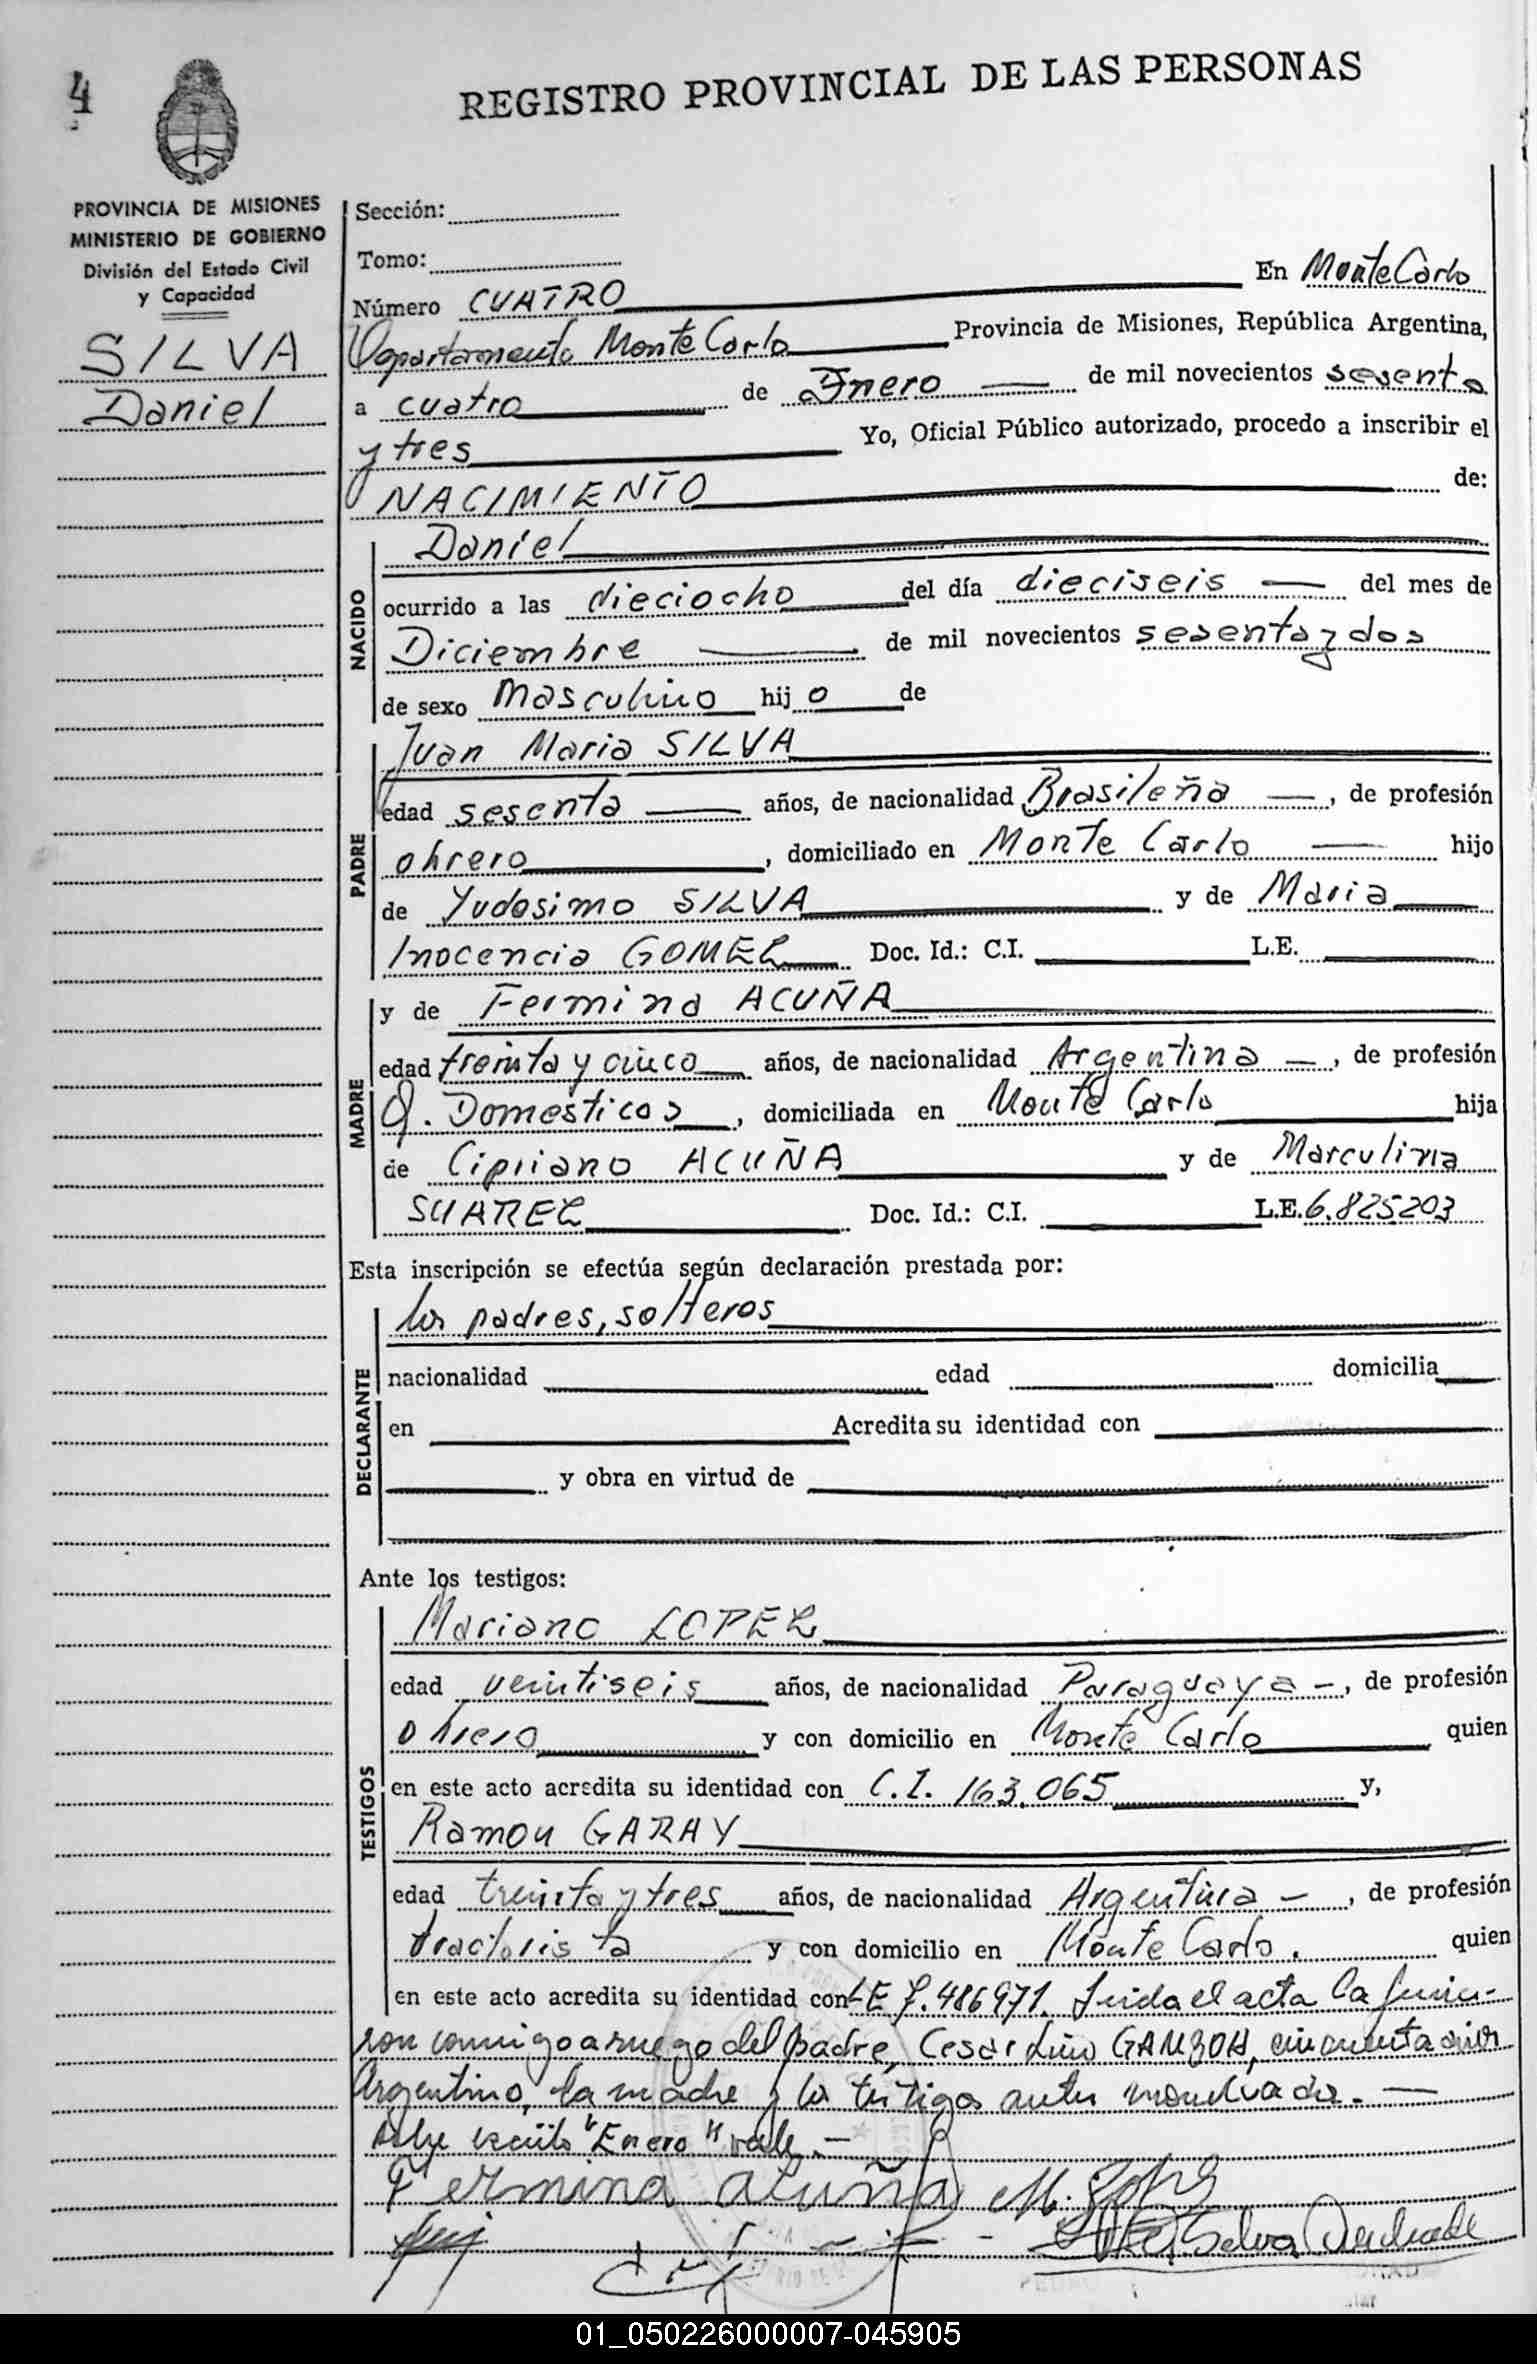 4
REGISTRO PROVINCIAL DE LAS PERSONAS
PROVINCIA DE MISIONES
MINISTERIO DE GOBIERNO
División del Estado Civil
y Capacidad
SILVA
Daniel
Sección:
Tomo:
Número CUATRO En Monte Carlo
Departamento Monte Carlo Provincia de Misiones, República Argentina,
a cuatro de Enero de mil novecientos sesenta
y tres Yo, Oficial Público autorizado, procedo a inscribir el
NACIMIENTO de:
NACIDO
Daniel
ocurrido a las dieciocho del día dieciseis del mes de
Diciembre de mil novecientos sesenta y dos
de sexo Masculino hijo de
PADRE
Juan Maria SILVA
edad sesenta años, de nacionalidad Brasileña, de profesión
obrero, domiciliado en Monte Carlo hijo
de Yudosimo SILVA y de Maria
Inocencia GOMEZ Doc. Id.: C.I. L.E.
MADRE
y de Fermina ACUÑA
edad treinta y cinco años, de nacionalidad Argentina, de profesión
Q. Domesticos, domiciliada en Monte Carlo hija
de Cipriano ACUÑA y de Marculina
SUAREZ Doc. Id.: C.I. L.E. 6.825203
Esta inscripción se efectúa según declaración prestada por:
DECLARANTE
los padres, solteros
nacionalidad edad domicilia
en Acredita su identidad con
y obra en virtud de
Ante los testigos:
TESTIGOS
Mariano LOPEZ
edad veintiseis años, de nacionalidad Paraguaya, de profesión
obrero y con domicilio en Monte Carlo quien
en este acto acredita su identidad con C.I. 163.065 y,
Ramon GARAY
edad treinta y tres años, de nacionalidad Argentina, de profesión
tractorista y con domicilio en Monte Carlo. quien
en este acto acredita su identidad con LE 7.486971. Leida el acta la firma-
ron conmigo a ruego del padre, Cesar Lino cincuenta años
Argentino, la madre y los testigos antes
Sobre escrito "Enero" vale.-
Fermina acuña M. Lopez
01_050226000007-045905